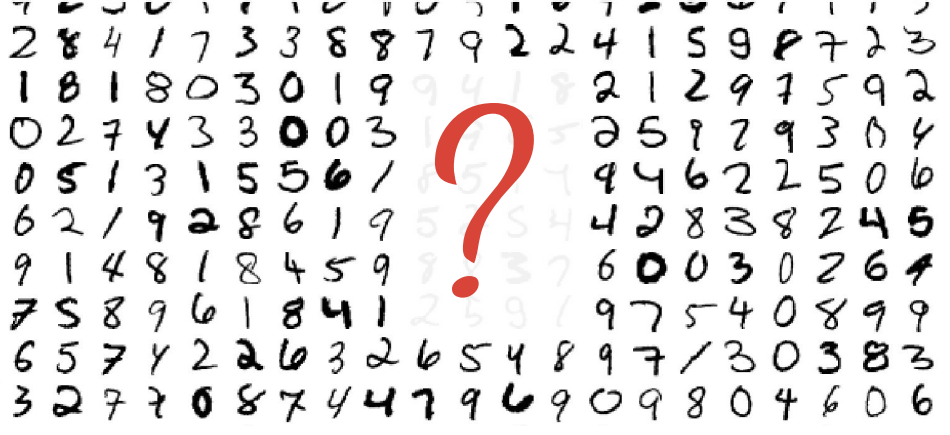 2 8 4 1 7 3 3 8 8 7 9 2 2 4 1 5 9 8 7 2 3
1 8 1 8 0 3 0 1 9 9 4 1 8 2 1 2 9 7 5 9 2
0 2 7 4 3 3 0 0 3 1 ? 5 2 5 9 2 9 3 0 4
0 5 1 3 1 5 5 6 1 8 5 4 9 4 6 2 2 5 0 6
6 2 1 9 2 8 6 1 9 5 5 4 4 2 8 3 8 2 4 5
9 1 4 8 1 8 4 5 9 8 3 7 6 0 0 3 0 2 6 4
7 5 8 9 6 1 8 4 1 2 5 9 1 9 7 5 4 0 8 9 9
6 5 7 4 2 2 6 3 2 6 5 4 8 9 7 1 3 0 3 8 3
3 2 7 7 0 8 7 4 4 7 9 6 9 0 9 8 0 4 6 0 6